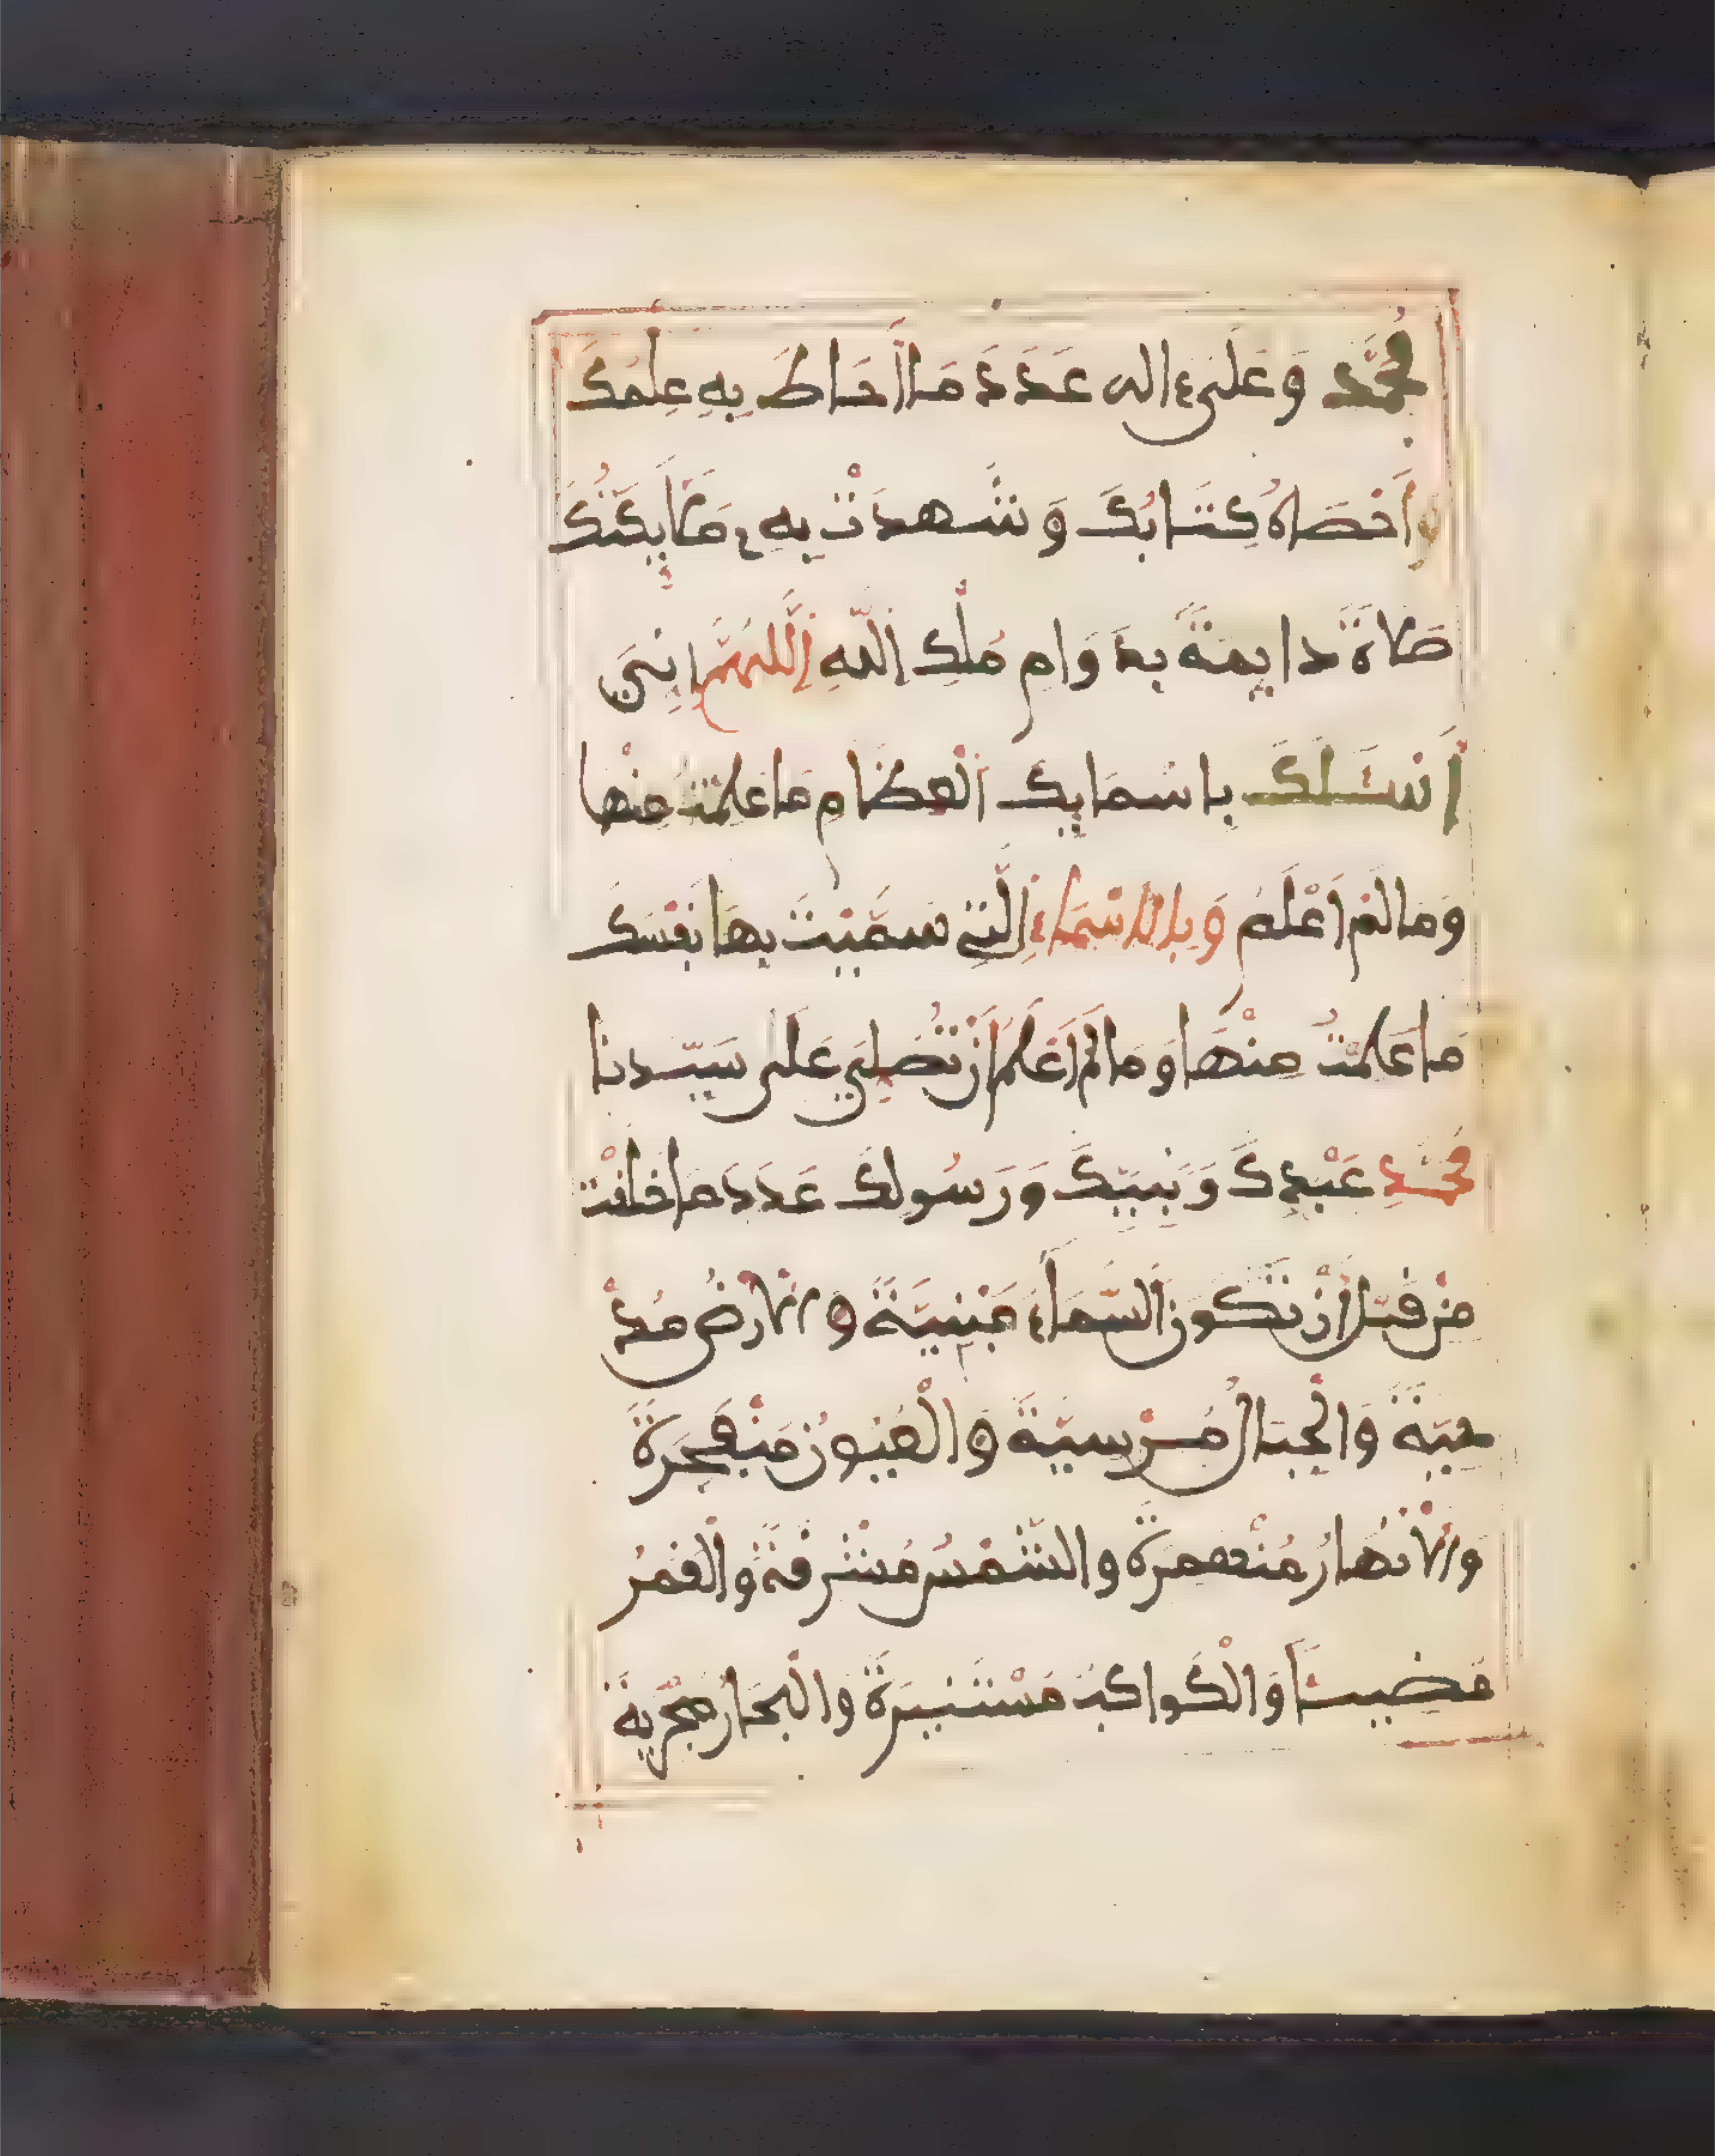 مُحَمَّد وَعَلَى ءاله عَدَدَ مَا أَحَاطَ بِهِ عِلْمُكَ
وَأَحْصَاهُ كِتَابُكَ وَشَهِدَتْ بِهِ مَلَايِكَتُكَ
صَلَاةً دَايِمَةً بِدَوَامِ مُلْكِ اللَّهِ اللَّهُمَّ إِنِّي
أَسْئَلُكَ بِاسْمَايِكَ الْعِظَامِ مَا عَلِمْتُ مِنْهَا
وَمَا لَمْ أَعْلَمْ وَبِالْأَسْمَاءِ الَّتِي سَمَّيْتَ بِهَا نَفْسَكَ
مَا عَلِمْتُ مِنْهَا وَمَا لَمْ أَعْلَمْ أَنْ تُصَلِّيَ عَلَى سَيِّدِنَا
مُحَمَّدٍ عَبْدِكَ وَنَبِيِّكَ وَرَسُولِكَ عَدَدَ مَا خَلَقْتَ
مِنْ قَبْلِ أَنْ تَكُونَ السَّمَاءُ مَبْنِيَّةً وَالْأَرْضُ مُدْ
حِيَّةً وَالْجِبَالُ مُرْسِيَّةً وَالْعُيُونُ مُنْفَجِرَةً
وَالْأَنْهَارُ مُنْهَمِرَةً وَالشَّمْسُ مُشْرِقَةً وَالْقَمَرُ
مُضِيئًا وَالْكَوَاكِبُ مُسْتَنِيرَةً وَالْبِحَارُ مُجْرِيَةً